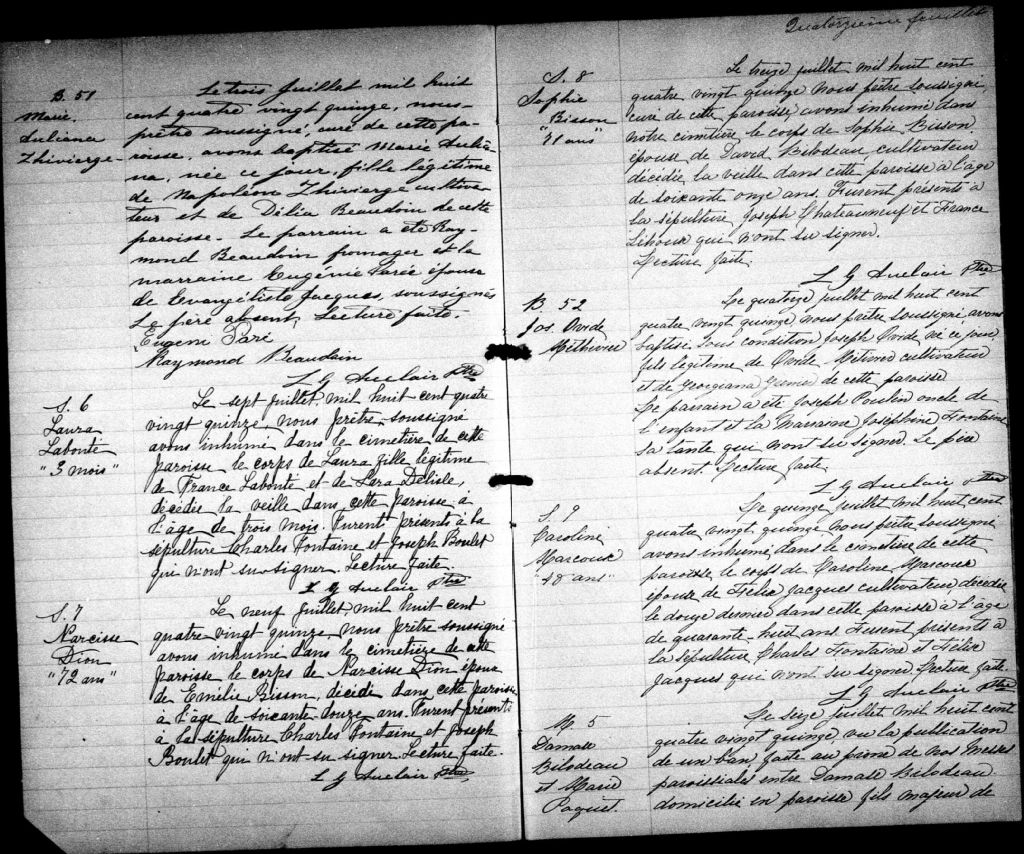 B. 51
Marie.
Auliana
Thivierge
Le trois Juillet mil huit
cent quatre vingt quinze, nous
prêtre soussigné, curé de cette pa-
roisse, avons baptisé Marie Aulia-
na, née ce jour, fille légitime
de Napoléon Thivierge cultiva-
teur et de Délia Beaudoin de cette
paroisse. Le parrain a été Ray-
mond Beaudoin fromager et la
marraine Eugénie Parée épouse
de Evangéliste Jacques, soussignés
Le père absent, Lecture faite.
Eugeni Paré
Raymond Beaudoin
L G Auclair Ptre
S. 6
Laura
Labonté
"3 mois"
Le sept Juillet mil huit cent quatre
vingt quinze, nous prêtre soussigné
avons inhumé dans le cimetière de cette
paroisse le corps de Laura fille légitime
de France Labonté et de Lara Delisle,
décédée la veille dans cette paroisse à
l'âge de trois mois. Furent présents à la
sépulture Charles Fontaine et Joseph Boulet
qui n'ont su signer. Lecture faite.
L G Auclair Ptre
S. 7
Narcisse
Dion
"72 ans"
Le neuf Juillet mil huit cent
quatre vingt quinze nous prêtre soussigné
avons inhumé dans le cimetière de cette
paroisse le corps de Narcisse Dion époux
de Emélie Bisson, décédé dans cette paroisse
à l'âge de soixante douze ans. Furent présents
à la sépulture Charles Fontaine et Joseph
Boulet qui n'ont su signer. Lecture faite.
L G Auclair Ptre
Quatorzième feuillet
S. 8
Sophie
Bisson
"71 ans"
Le treize juillet mil huit cent
quatre vingt quinze nous prêtre soussigné
curé de cette paroisse, avons inhumé dans
notre cimetière le corps de Sophie Bisson
épouse de David Bilodeau cultivateur
décédée la veille dans cette paroisse à l'âge
de soixante onze ans. Furent présents à
la sépulture Joseph Chateauneuf et France
Lehoux qui n'ont su signer.
Lecture faite.
L G Auclair Ptre
B. 52
Jos. Ovide
Méthivier
Le quatorze juillet mil huit cent
quatre vingt quinze nous prêtre soussigné avons
baptisé sous condition Joseph Ovide né ce jour
fils légitime de Ovide Métivier cultivateur
et de Georgiana Grenier de cette paroisse
Le parrain a été Joseph Poulin oncle de
l'enfant et la Marraine Joséphine Fontaine
sa tante qui n'ont su signer. Le père
absent Lecture faite.
L G Auclair ptre
S. 9
Caroline
Marcoux
"48 ans"
Le quinze juillet mil huit cent
quatre vingt quinze nous prêtre soussigné
avons inhumé dans le cimetière de cette
paroisse le corps de Caroline Marcoux
épouse de Félix Jacques cultivateur, décédée
le douze dernier dans cette paroisse à l'âge
de quarante-huit ans. Furent présents à
la sépulture Charles Fontaine et Félix
Jacques qui n'ont su signer. Lecture faite.
L G Auclair Ptre
M. 5
Damase
Bilodeau
et Marie
Paquet.
Le seize juillet mil huit cent
quatre vingt quinze vu la publication
de un ban faite au prône de nos Messes
paroissiales entre Damase Bilodeau
domicilié en paroisse fils majeur de